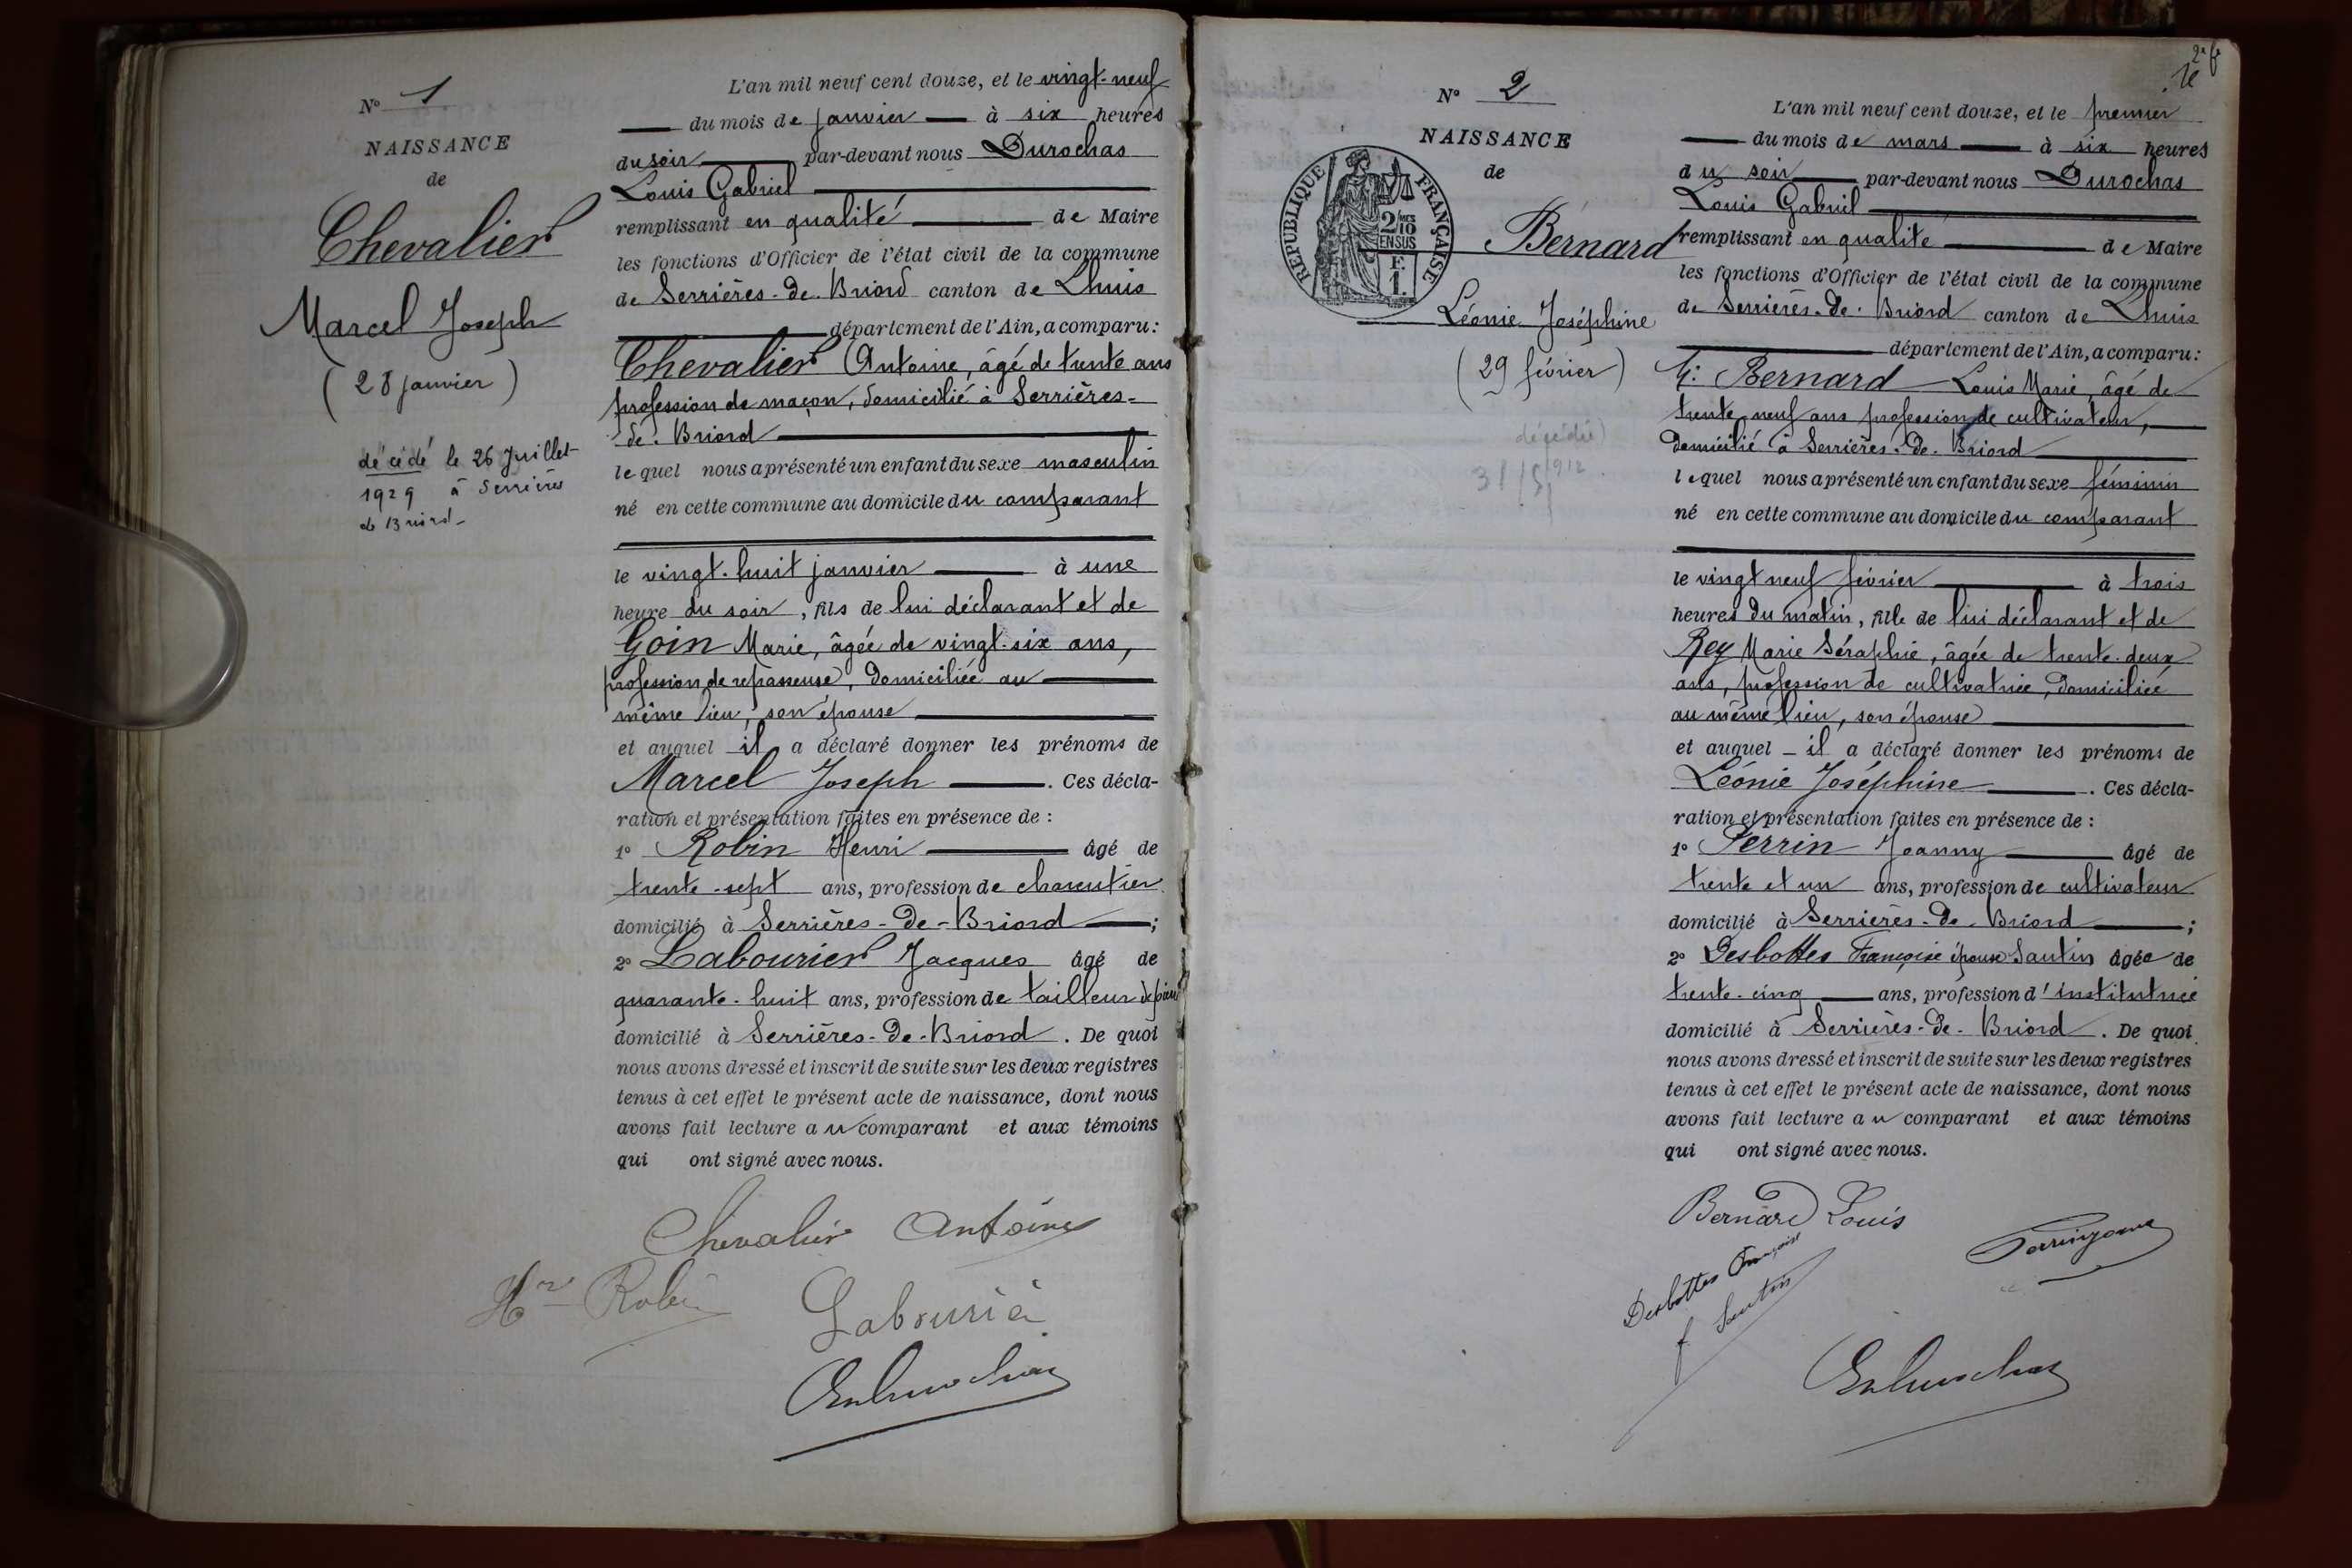 N° 1
NAISSANCE
de
Chevalier
Marcel Joseph
(28 janvier)
décédé le 26 Juillet
1929 à Serrières
de Briord
L'an mil neuf cent douze, et le vingt-neuf
du mois de janvier à six heures
du soir par-devant nous Durochas
Louis Gabriel
remplissant en qualité de Maire
les fonctions d'Officier de l'état civil de la commune
de Serrières-de-Briord canton de Lhuis
département de l'Ain, a comparu:
Chevalier Antoine, âgé de trente ans
profession de maçon, domicilié à Serrières-
de-Briord
lequel nous a présenté un enfant du sexe masculin
né en cette commune au domicile du comparant
le vingt-huit janvier à une
heure du soir, fils de lui déclarant et de
Goin Marie, âgée de vingt-six ans,
profession de repasseuse, domiciliée au
même lieu, son épouse
et auquel il a déclaré donner les prénoms de
Marcel Joseph. Ces décla-
ration et présentation faites en présence de :
1° Robin Henri âgé de
trente-sept ans, profession de charcutier
domicilié à Serrières-de-Briord ;
2° Labourier Jacques âgé de
quarante-huit ans, profession de tailleur de pierre
domicilié à Serrières-de-Briord. De quoi
nous avons dressé et inscrit de suite sur les deux registres
tenus à cet effet le présent acte de naissance, dont nous
avons fait lecture au comparant et aux témoins
qui ont signé avec nous.
Chevalier Antoine
Hri Robin
Labourier
Durochas
2e f
N° 2
NAISSANCE
de
RÉPUBLIQUE FRANÇAISE
2/10 MES
EN SUS
F.
1.
Bernard
Léonie Joséphine
(29 février)
décédée
31/5/1912
L'an mil neuf cent douze, et le premier
du mois de mars à six heures
du soir par-devant nous Durochas
Louis Gabriel
remplissant en qualité de Maire
les fonctions d'Officier de l'état civil de la commune
de Serrières-de-Briord canton de Lhuis
département de l'Ain, a comparu:
Bernard Louis Marie, âgé de
trente-neuf ans profession de cultivateur,
domicilié à Serrières-de-Briord
lequel nous a présenté un enfant du sexe féminin
né en cette commune au domicile du comparant
le vingt neuf février à trois
heures du matin, fille de lui déclarant et de
Rey Marie Séraphie, âgée de trente-deux
ans, profession de cultivatrice, domiciliée
au même lieu, son épouse
et auquel il a déclaré donner les prénoms de
Léonie Joséphine. Ces décla-
ration et présentation faites en présence de :
1° Perrin Joanny âgé de
trente et un ans, profession de cultivateur
domicilié à Serrières-de-Briord ;
2° Desbottes Françoise épouse Santin âgée de
trente-cinq ans, profession d'institutrice
domicilié à Serrières-de-Briord. De quoi
nous avons dressé et inscrit de suite sur les deux registres
tenus à cet effet le présent acte de naissance, dont nous
avons fait lecture au comparant et aux témoins
qui ont signé avec nous.
Bernard Louis
Desbottes Françoise
f Santin
Durochas